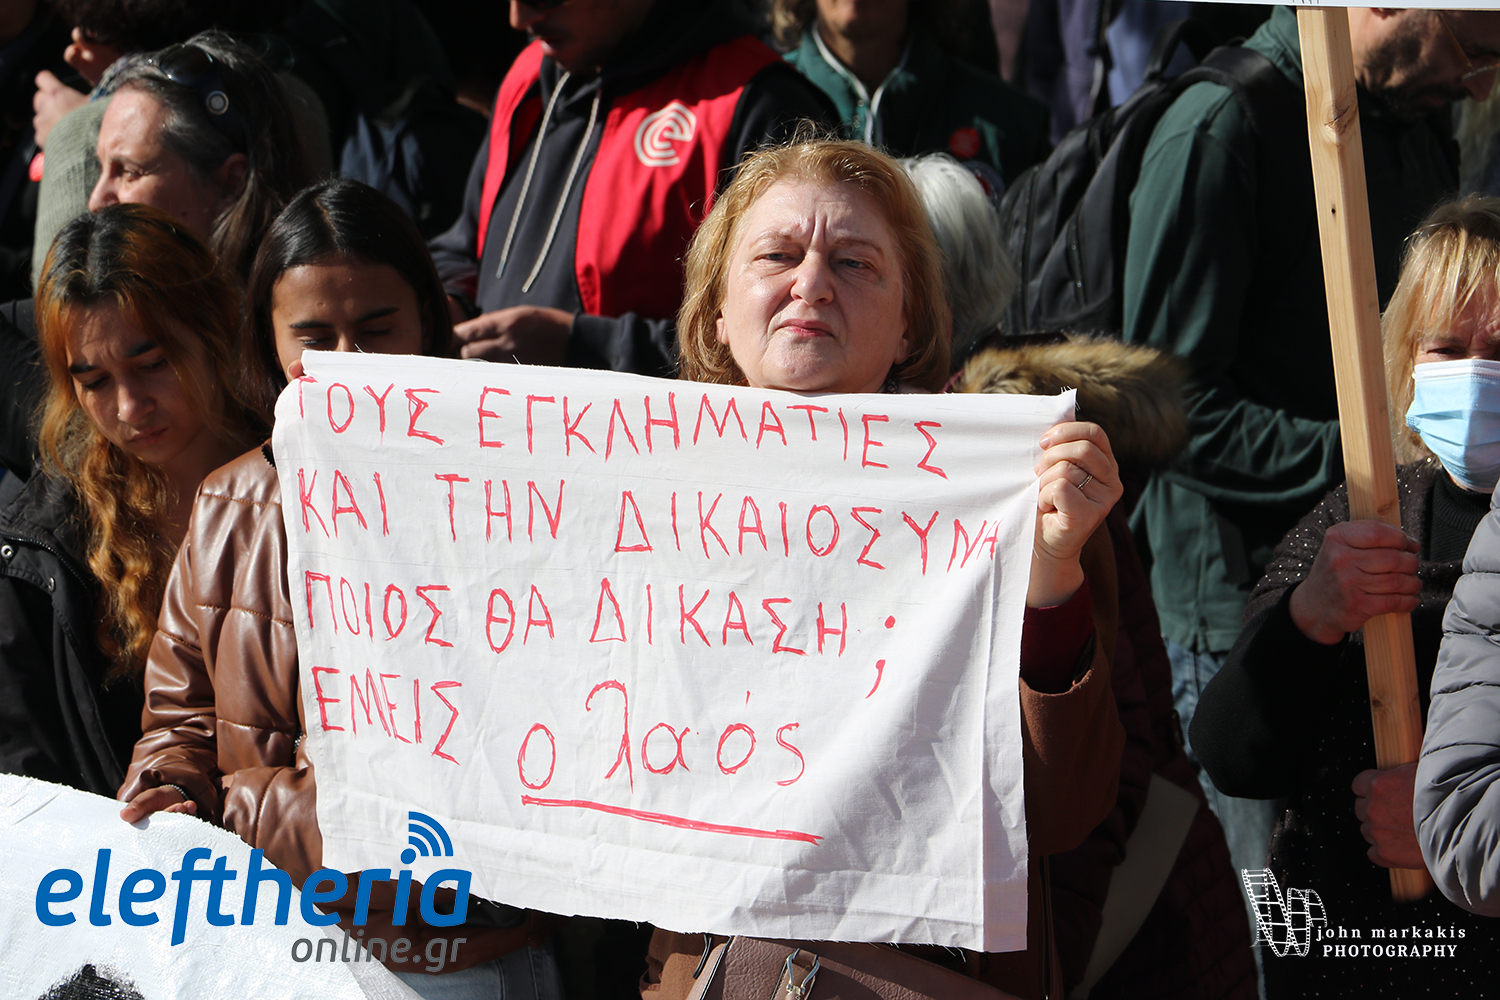 ΤΟΥΣ ΕΓΚΛΗΜΑΤΙΕΣ
ΚΑΙ ΤΗΝ ΔΙΚΑΙΟΣΥΝΗ
ΠΟΙΟΣ ΘΑ ΔΙΚΑΣΗ;
ΕΜΕΙΣ ο λαός
eleftheria
online.gr
john markakis
PHOTOGRAPHY